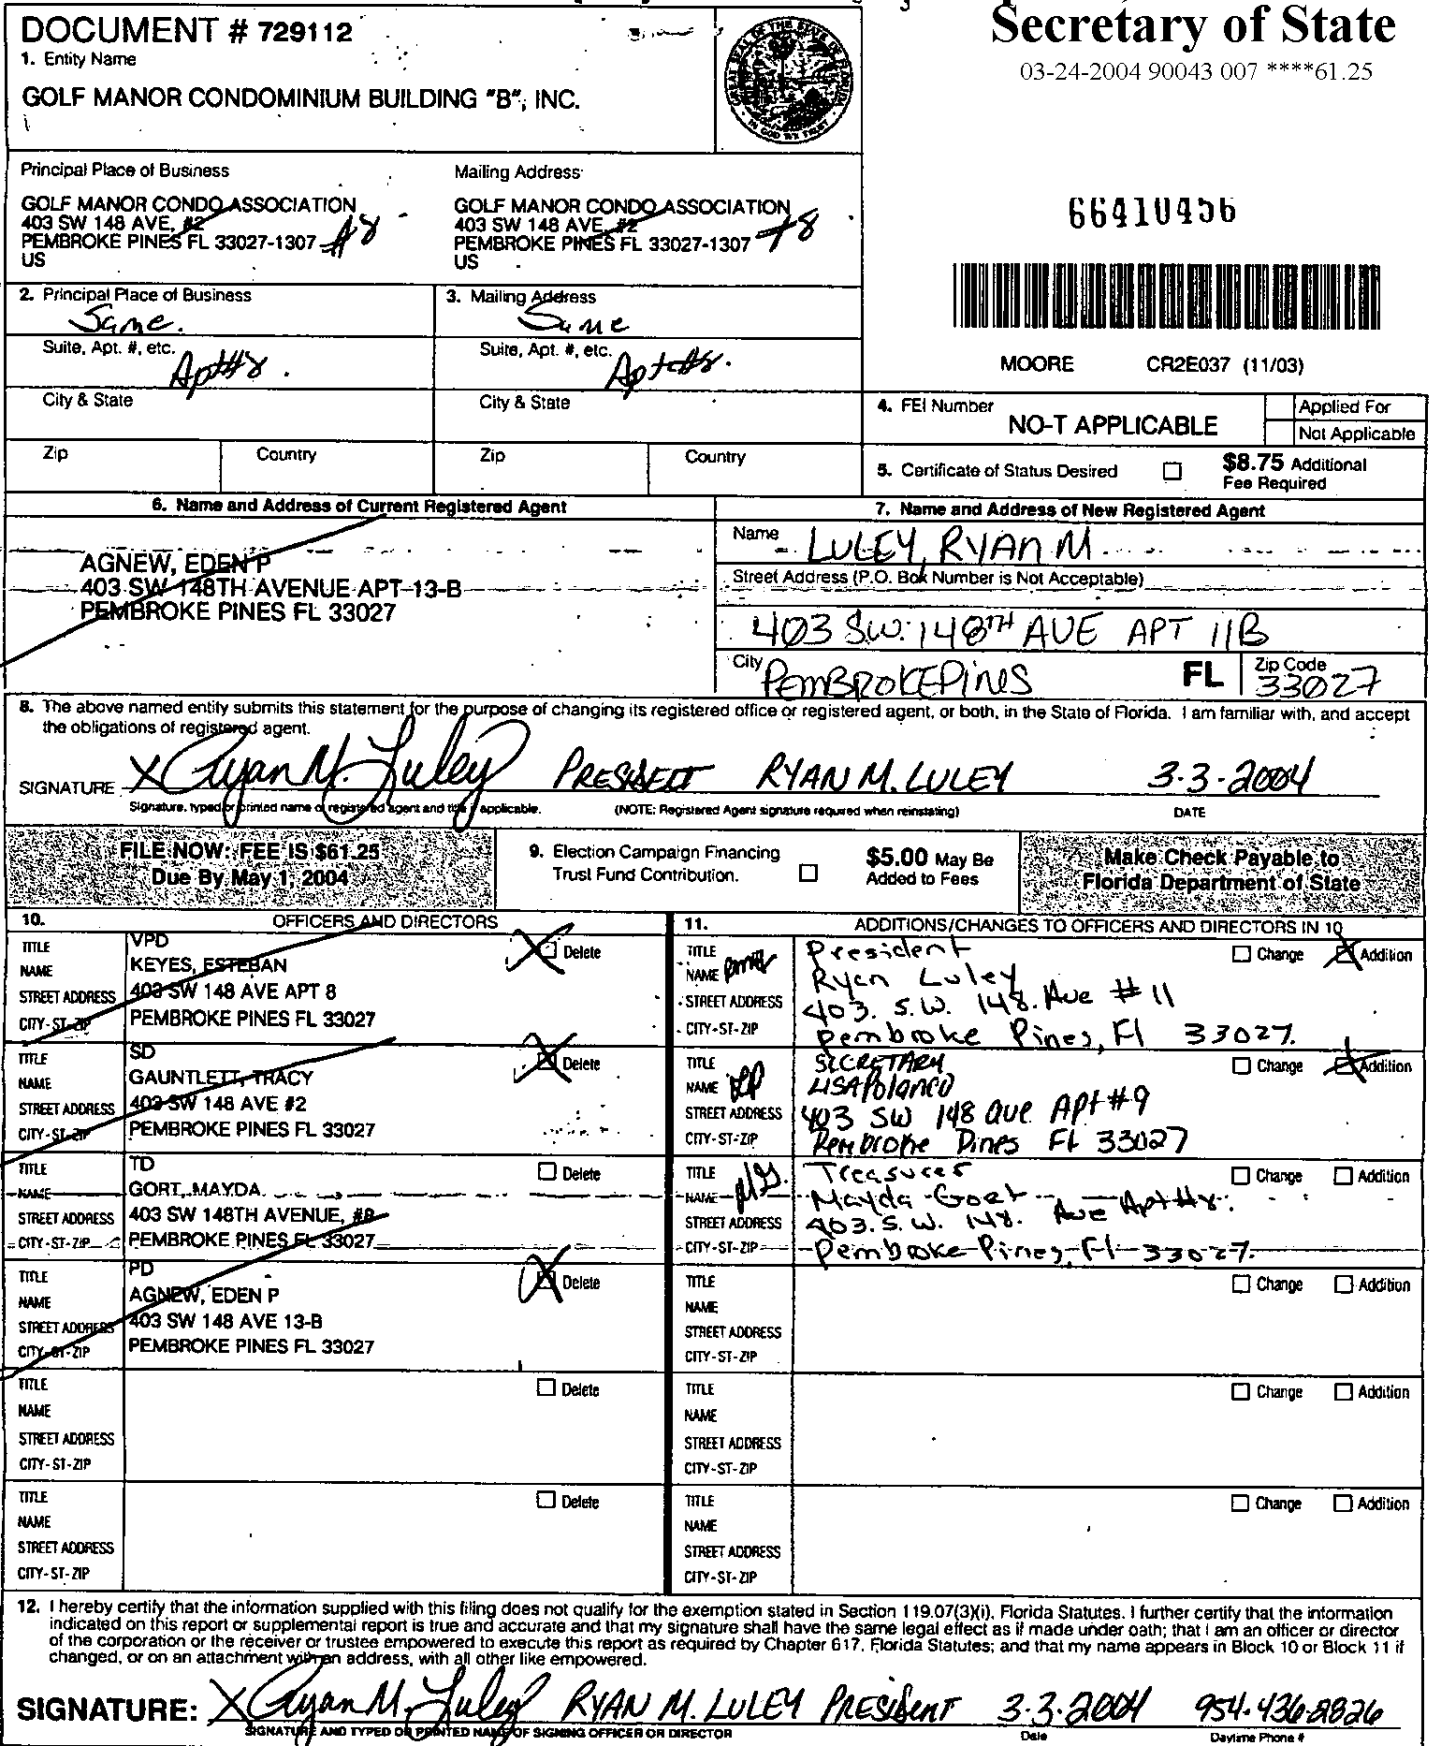 Secretary of State
03-24-2004 90043 007 ****61.25
DOCUMENT # 729112
1. Entity Name
GOLF MANOR CONDOMINIUM BUILDING "B", INC.
Principal Place of Business
GOLF MANOR CONDO ASSOCIATION
403 SW 148 AVE, #2
PEMBROKE PINES FL 33027-1307 #8
US
Mailing Address
GOLF MANOR CONDO ASSOCIATION
403 SW 148 AVE, #2
PEMBROKE PINES FL 33027-1307 #8
US
66410456
MOORE CR2E037 (11/03)
2. Principal Place of Business
Same.
Suite, Apt. #, etc.
Apt#8.
City & State
Zip Country
3. Mailing Address
Same
Suite, Apt. #, etc.
Apt#8.
City & State
Zip Country
4. FEI Number
NO-T APPLICABLE
Applied For
Not Applicable
5. Certificate of Status Desired
$8.75 Additional
Fee Required
6. Name and Address of Current Registered Agent
AGNEW, EDEN P
403 SW 148TH AVENUE APT 13-B
PEMBROKE PINES FL 33027
7. Name and Address of New Registered Agent
Name LULEY, RYAN M.
Street Address (P.O. Box Number is Not Acceptable)
403 S.W. 148TH AVE APT 11B
City PEMBROKE PINES FL Zip Code 33027
8. The above named entity submits this statement for the purpose of changing its registered office or registered agent, or both, in the State of Florida. I am familiar with, and accept
the obligations of registered agent.
SIGNATURE X Ryan M. Luley PRESIDENT RYAN M. LULEY 3-3-2004
Signature, typed or printed name of registered agent and title if applicable. (NOTE: Registered Agent signature required when reinstating) DATE
FILE NOW: FEE IS $61.25
Due By May 1, 2004
9. Election Campaign Financing
Trust Fund Contribution.
$5.00 May Be
Added to Fees
Make Check Payable to
Florida Department of State
10. OFFICERS AND DIRECTORS
TITLE VPD Delete
NAME KEYES, ESTEBAN
STREET ADDRESS 403 SW 148 AVE APT 8
CITY-ST-ZIP PEMBROKE PINES FL 33027
TITLE SD Delete
NAME GAUNTLETT, TRACY
STREET ADDRESS 403 SW 148 AVE #2
CITY-ST-ZIP PEMBROKE PINES FL 33027
TITLE TD Delete
NAME GORT, MAYDA
STREET ADDRESS 403 SW 148TH AVENUE, #8
CITY-ST-ZIP PEMBROKE PINES FL 33027
TITLE PD Delete
NAME AGNEW, EDEN P
STREET ADDRESS 403 SW 148 AVE 13-B
CITY-ST-ZIP PEMBROKE PINES FL 33027
TITLE Delete
NAME
STREET ADDRESS
CITY-ST-ZIP
TITLE Delete
NAME
STREET ADDRESS
CITY-ST-ZIP
11. ADDITIONS/CHANGES TO OFFICERS AND DIRECTORS IN 10
TITLE President Change Addition
NAME Ryan Luley
STREET ADDRESS 403. S.W. 148. Ave #11
CITY-ST-ZIP Pembroke Pines, Fl 33027.
TITLE SECRETARY Change Addition
NAME LP LISA Polanco
STREET ADDRESS 403 SW 148 ave Apt #9
CITY-ST-ZIP Pembroke Pines FL 33027
TITLE Treasurer Change Addition
NAME MG. Mayda Gort
STREET ADDRESS 403. S.W. 148. Ave Apt #8.
CITY-ST-ZIP Pembroke Pines, Fl 33027.
TITLE Change Addition
NAME
STREET ADDRESS
CITY-ST-ZIP
TITLE Change Addition
NAME
STREET ADDRESS
CITY-ST-ZIP
TITLE Change Addition
NAME
STREET ADDRESS
CITY-ST-ZIP
12. I hereby certify that the information supplied with this filing does not qualify for the exemption stated in Section 119.07(3)(i), Florida Statutes. I further certify that the information
indicated on this report or supplemental report is true and accurate and that my signature shall have the same legal effect as if made under oath; that I am an officer or director
of the corporation or the receiver or trustee empowered to execute this report as required by Chapter 617, Florida Statutes; and that my name appears in Block 10 or Block 11 if
changed, or on an attachment with an address, with all other like empowered.
SIGNATURE: X Ryan M. Luley RYAN M. LULEY PRESIDENT 3-3-2004 954-436-2826
SIGNATURE AND TYPED OR PRINTED NAME OF SIGNING OFFICER OR DIRECTOR Date Daytime Phone #